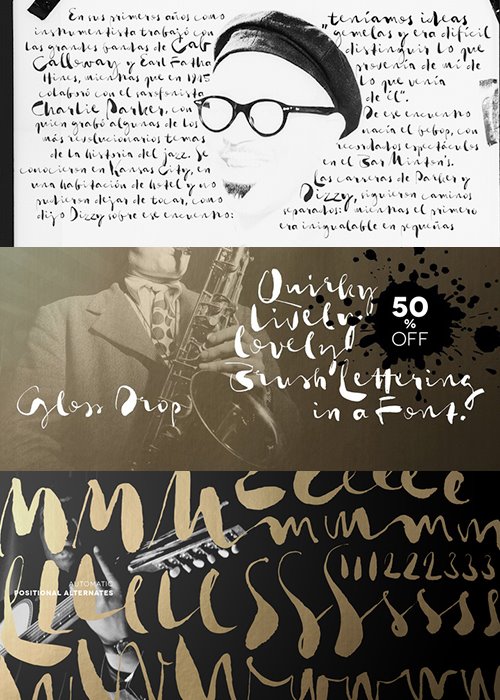 En sus primeros años como
instrumentista trabajó con
las grandes bandas de Cab
Calloway y Earl Fatha
Hines, mientras que en 1945
colaboró con el saxofonista
Charlie Parker, con
quien grabó algunas de los
más revolucionarios temas
de la historia del jazz. Se
conocieron en Kansas City, en
una habitación de hotel y no
pudieron dejar de tocar, como
dijo Dizzy sobre ese encuentro:
"teníamos ideas
gemelas y era difícil
distinguir lo que
provenía de mí de
lo que venía
de él".
De ese encuentro
nacía el bebop, con
recordados espectáculos
en el Bar Minton's.
Las carreras de Parker y
Dizzy, siguieron caminos
separados: mientras el primero
era inigualable en pequeñas
Quirky
Lively
Lovely!
Brush Lettering
in a Font.
50
%
OFF
Gloss Drop
AUTOMATIC
POSITIONAL ALTERNATES
111222333